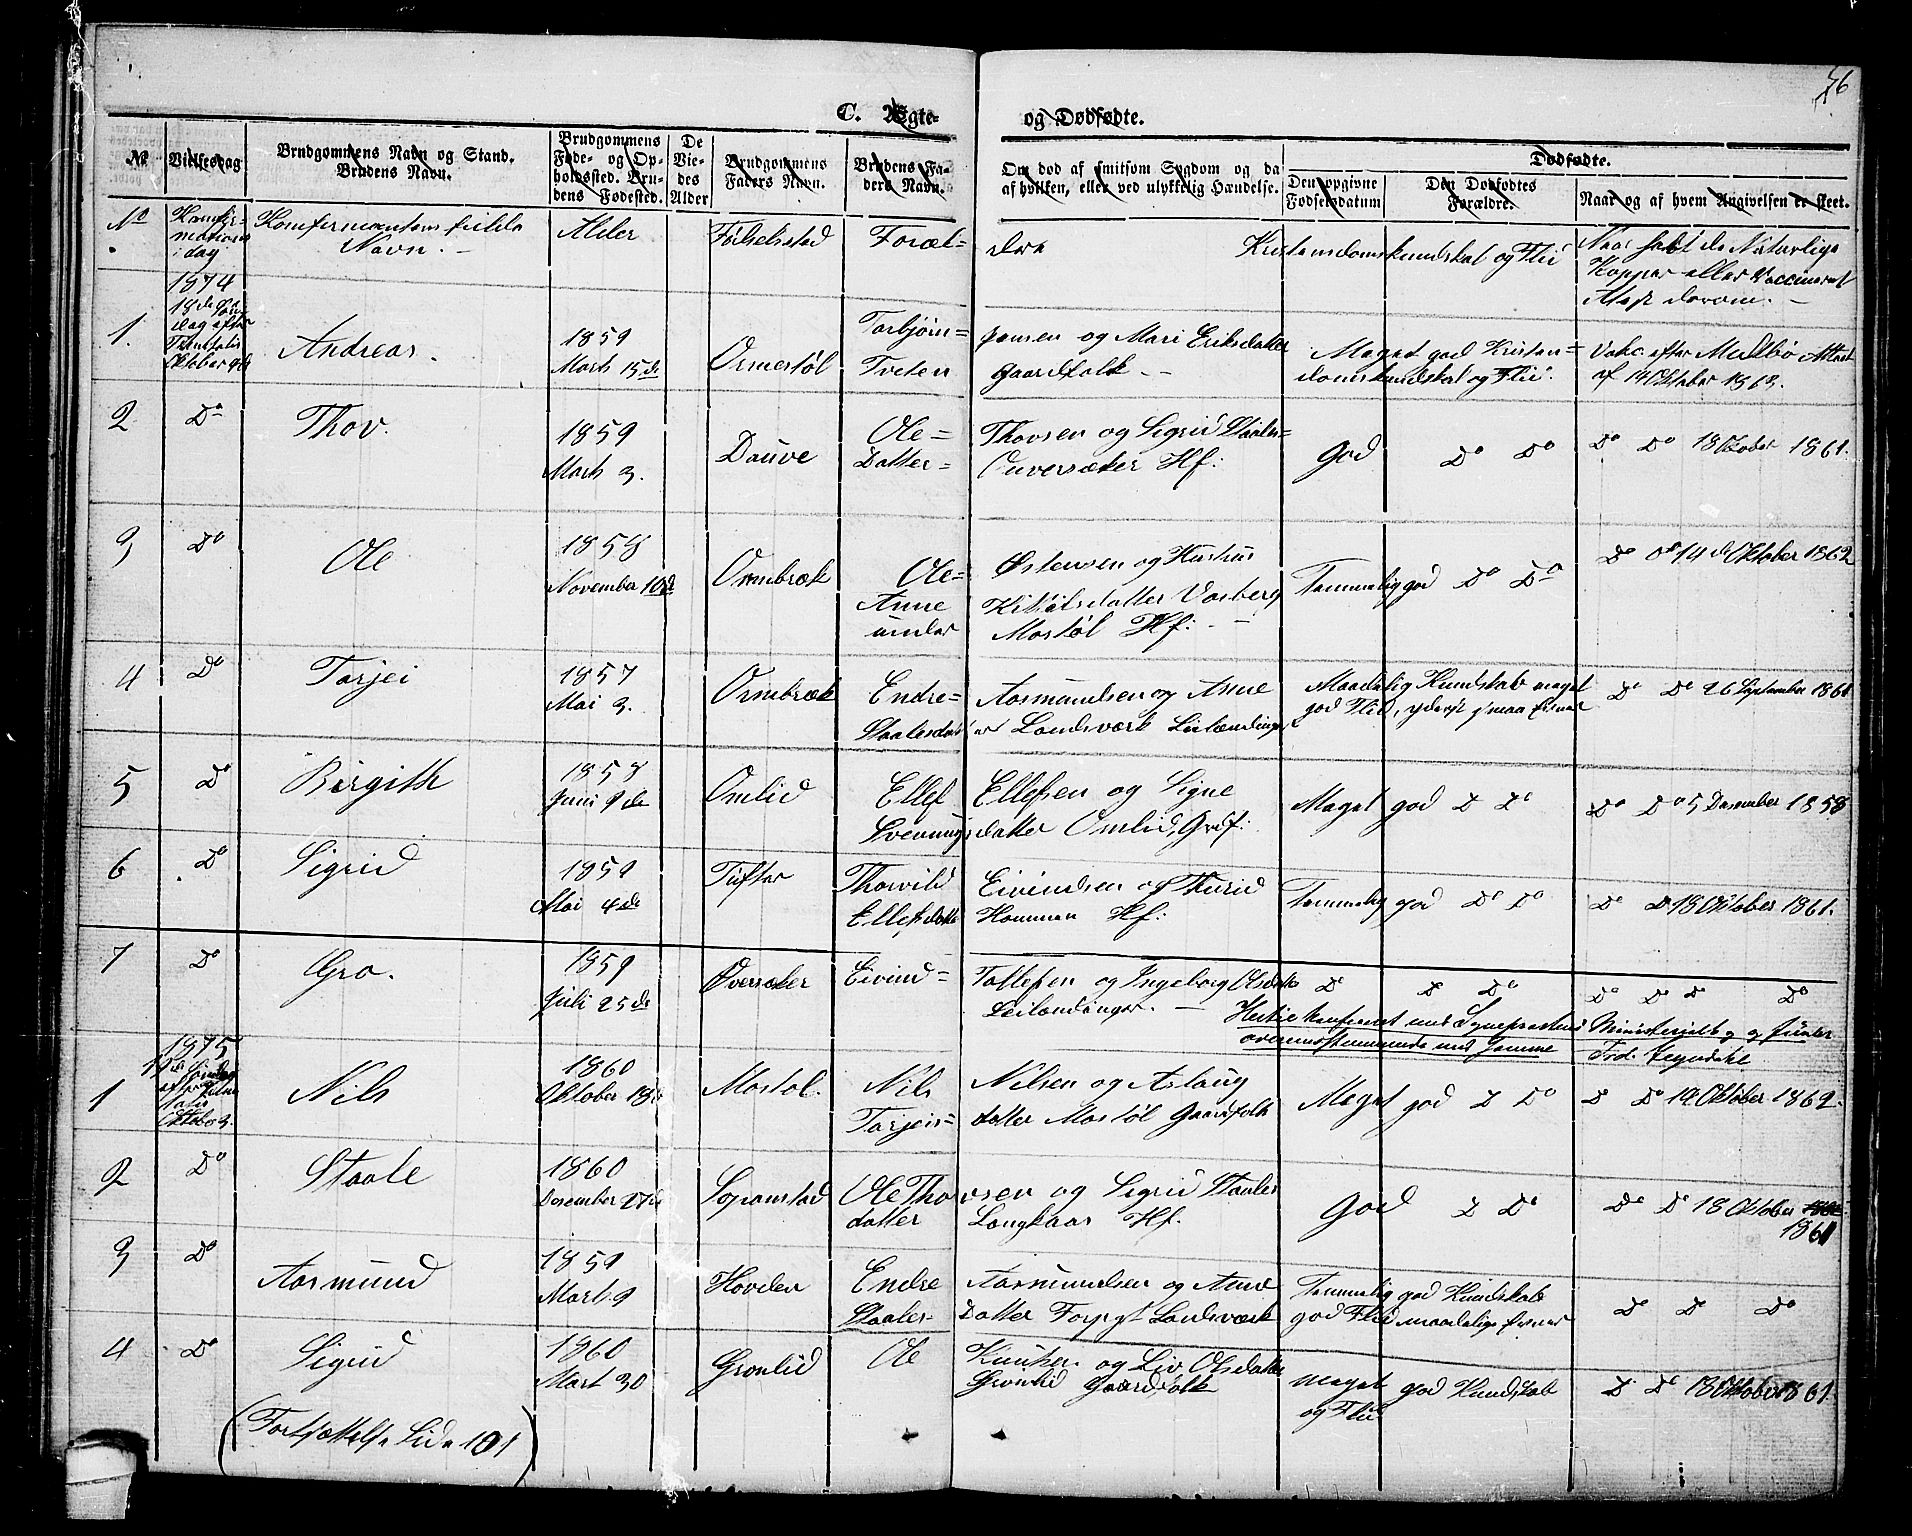 76
C. Ægte- og Dødfødte.
No Vielsesdag Brudgommens Navn og Stand. Brudens Navn. Brudgommens Føde- og Opholdssted. Brudens Fødested. De Viedes Alder Brudgommens Faders Navn. Brudens Faders Navn. Om død af smitsom Sygdom og da af hvilken, eller ved ulykkelig Hændelse. Dødfødte. Den opgivne Fødselsdatum Den Dødfødtes Forældre. Naar og af hvem Angivelsen er skeet.
No Konfirmations dag Konfirmantens fulde Navn. — Alder Fødselssted Forældre Kristendomskundskab og Flid Naar havt de Naturlige Kopper eller Vaccineret Atest derom. —
1874
1. 18de Søndag efter Trinitatis Oktober 4de Andreas. 1859 Marts 15de Ormestøl Torbjørn= Jonsen og Mari Eriksdatter
Tveten Gaardfolk — Meget god Kristen=domskundskab og Flid. Vakc. efter Mulbø Attest af 14 Oktober 1863.
2 Do Thov. 1859 Marts 3. Dauve Ole= Thovsen og Sigrid Staales=
Datter= Ouversæker Hf: God Do Do Do Do 18 Oktober 1861.
3 Do Ole 1858 November 10de Ormbræk Ole= Østensen og Husfrus
Anne Kittilsdatter Vasberg
under Mostøl Hf: — Temmelig god Do Do Do Do 14de Oktober 1862
4 Do Torjei 1857 Mai 3. Ormbræk Endre= Aasmundsen og Anne
Staalesdatter Landsværk Leilændinger Maadelig Kundskab meget god Flid, Do Do 26 September 1861
5 Do Birgith 1858 Juni 9de Omlid Ellef Ellefsen og Signe
Svenungsdatter Omlid, Grdf: Meget god D Do Do Do 5 Desember 1858
6 Do Sigrid 1859 Mai 4de Tufter Thorvild Eivindsen og Thurid
Ellefsdatter Hommen Hf: Temmelig god Do Do Do Do 18 Oktober 1861.
7 Do Gro. 1859 Juli 25de Oversæker Eivind= Tollefsen og Ingeborg Olsdatter
Leilændinger. — D D Do Do Do D Do
Herkie konfereret med Sogneprestens Ministerialbog og funden
overensstemmende med samme Frd. Tegndahl
1875
1 19de Søndag efter Trinitatis Oktober 3. Nils 1860 Oktober 18de Mostøl. Nils Nilsen og Aslaug
Torjeis= datter Mostøl Gaardfolk Meget god D Do Do Do 19 Oktober 1862.
2 Do Staale 1860 Desember 27de Sopamstad Ole Thovsen og Sigrid Staales
datter Langkaas Hf. God D Do Do Do 18 Oktober 1861
3 Do Aasmund 1859 Marts 9 Hovden Endre Aasmundsen og Anne
Staales= Datter Forpgt Landsværk Temmelig god Kundskab god Flid maadelige Evner Do Do Do
4 Do Sigrid 1860 Mart 30 Grønlid Ole Knutsen og Liv Olsdatter
Grønlid Gaardfolk Meget god Kundskab og Flid D. Do 18 Oktober 1861.
(Fortsættelse Side 101)